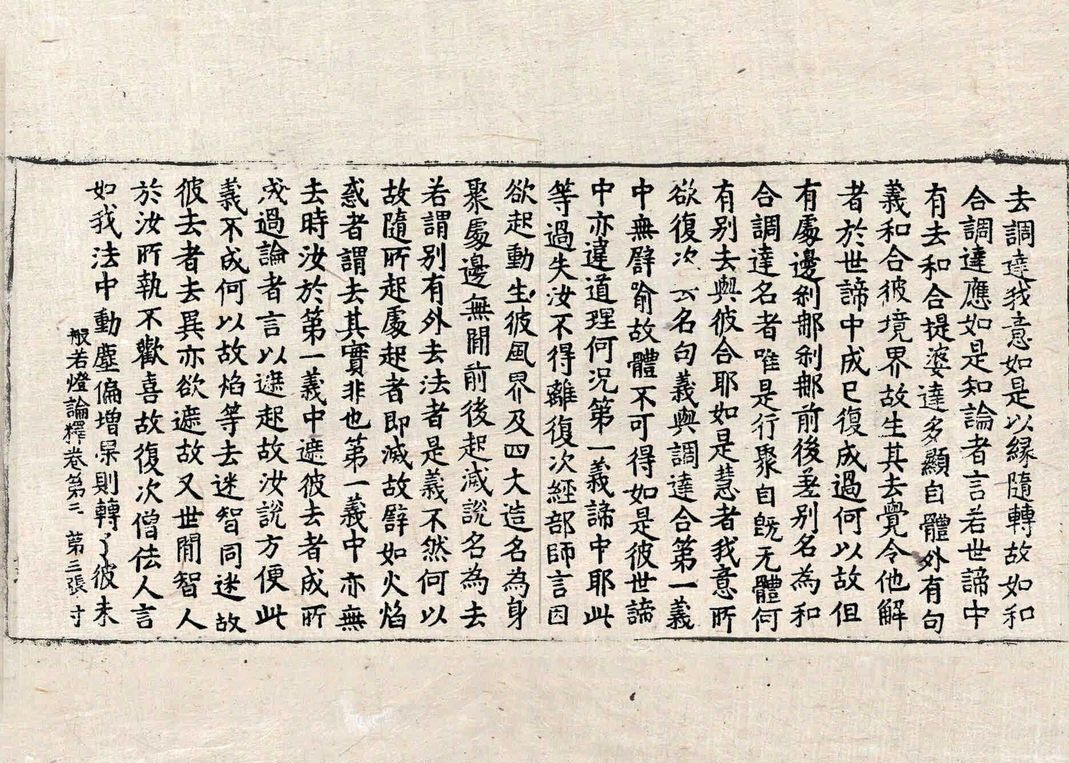 去調達我意如是以縁隨轉故如和
合調達應如是知論者言若世諦中
有去和合提婆達多顯自體外有句
義和合彼境界故生其去覺令他解
者於世諦中成已復成過何以故但
有處邊刹那刹那前後差別名為和
合調達名者唯是行聚自旣无體何
有別去與彼合耶如是慧者我意所
欲復次去名句義與調達合第一義
中無譬喻故體不可得如是彼世諦
中亦違道理何況第一義諦中耶此
等過失汝不得離復次經部師言因
欲起動生彼風界及四大造名為身
聚處邊無間前後起滅說名為去
若謂別有外去法者是義不然何以
故隨所起處起者即滅故譬如火焰
惑者謂去其實非也第一義中亦無
去時汝於第一義中遮彼去者成所
成過論者言以遮起故汝說方便此
義不成何以故焰等去迷智同迷故
彼去者去異亦欲遮故又世間智人
於汝所執不歡喜故復次僧佉人言
如我法中動塵偏增果則轉了彼未
般若燈論釋卷第三 第三張 寸